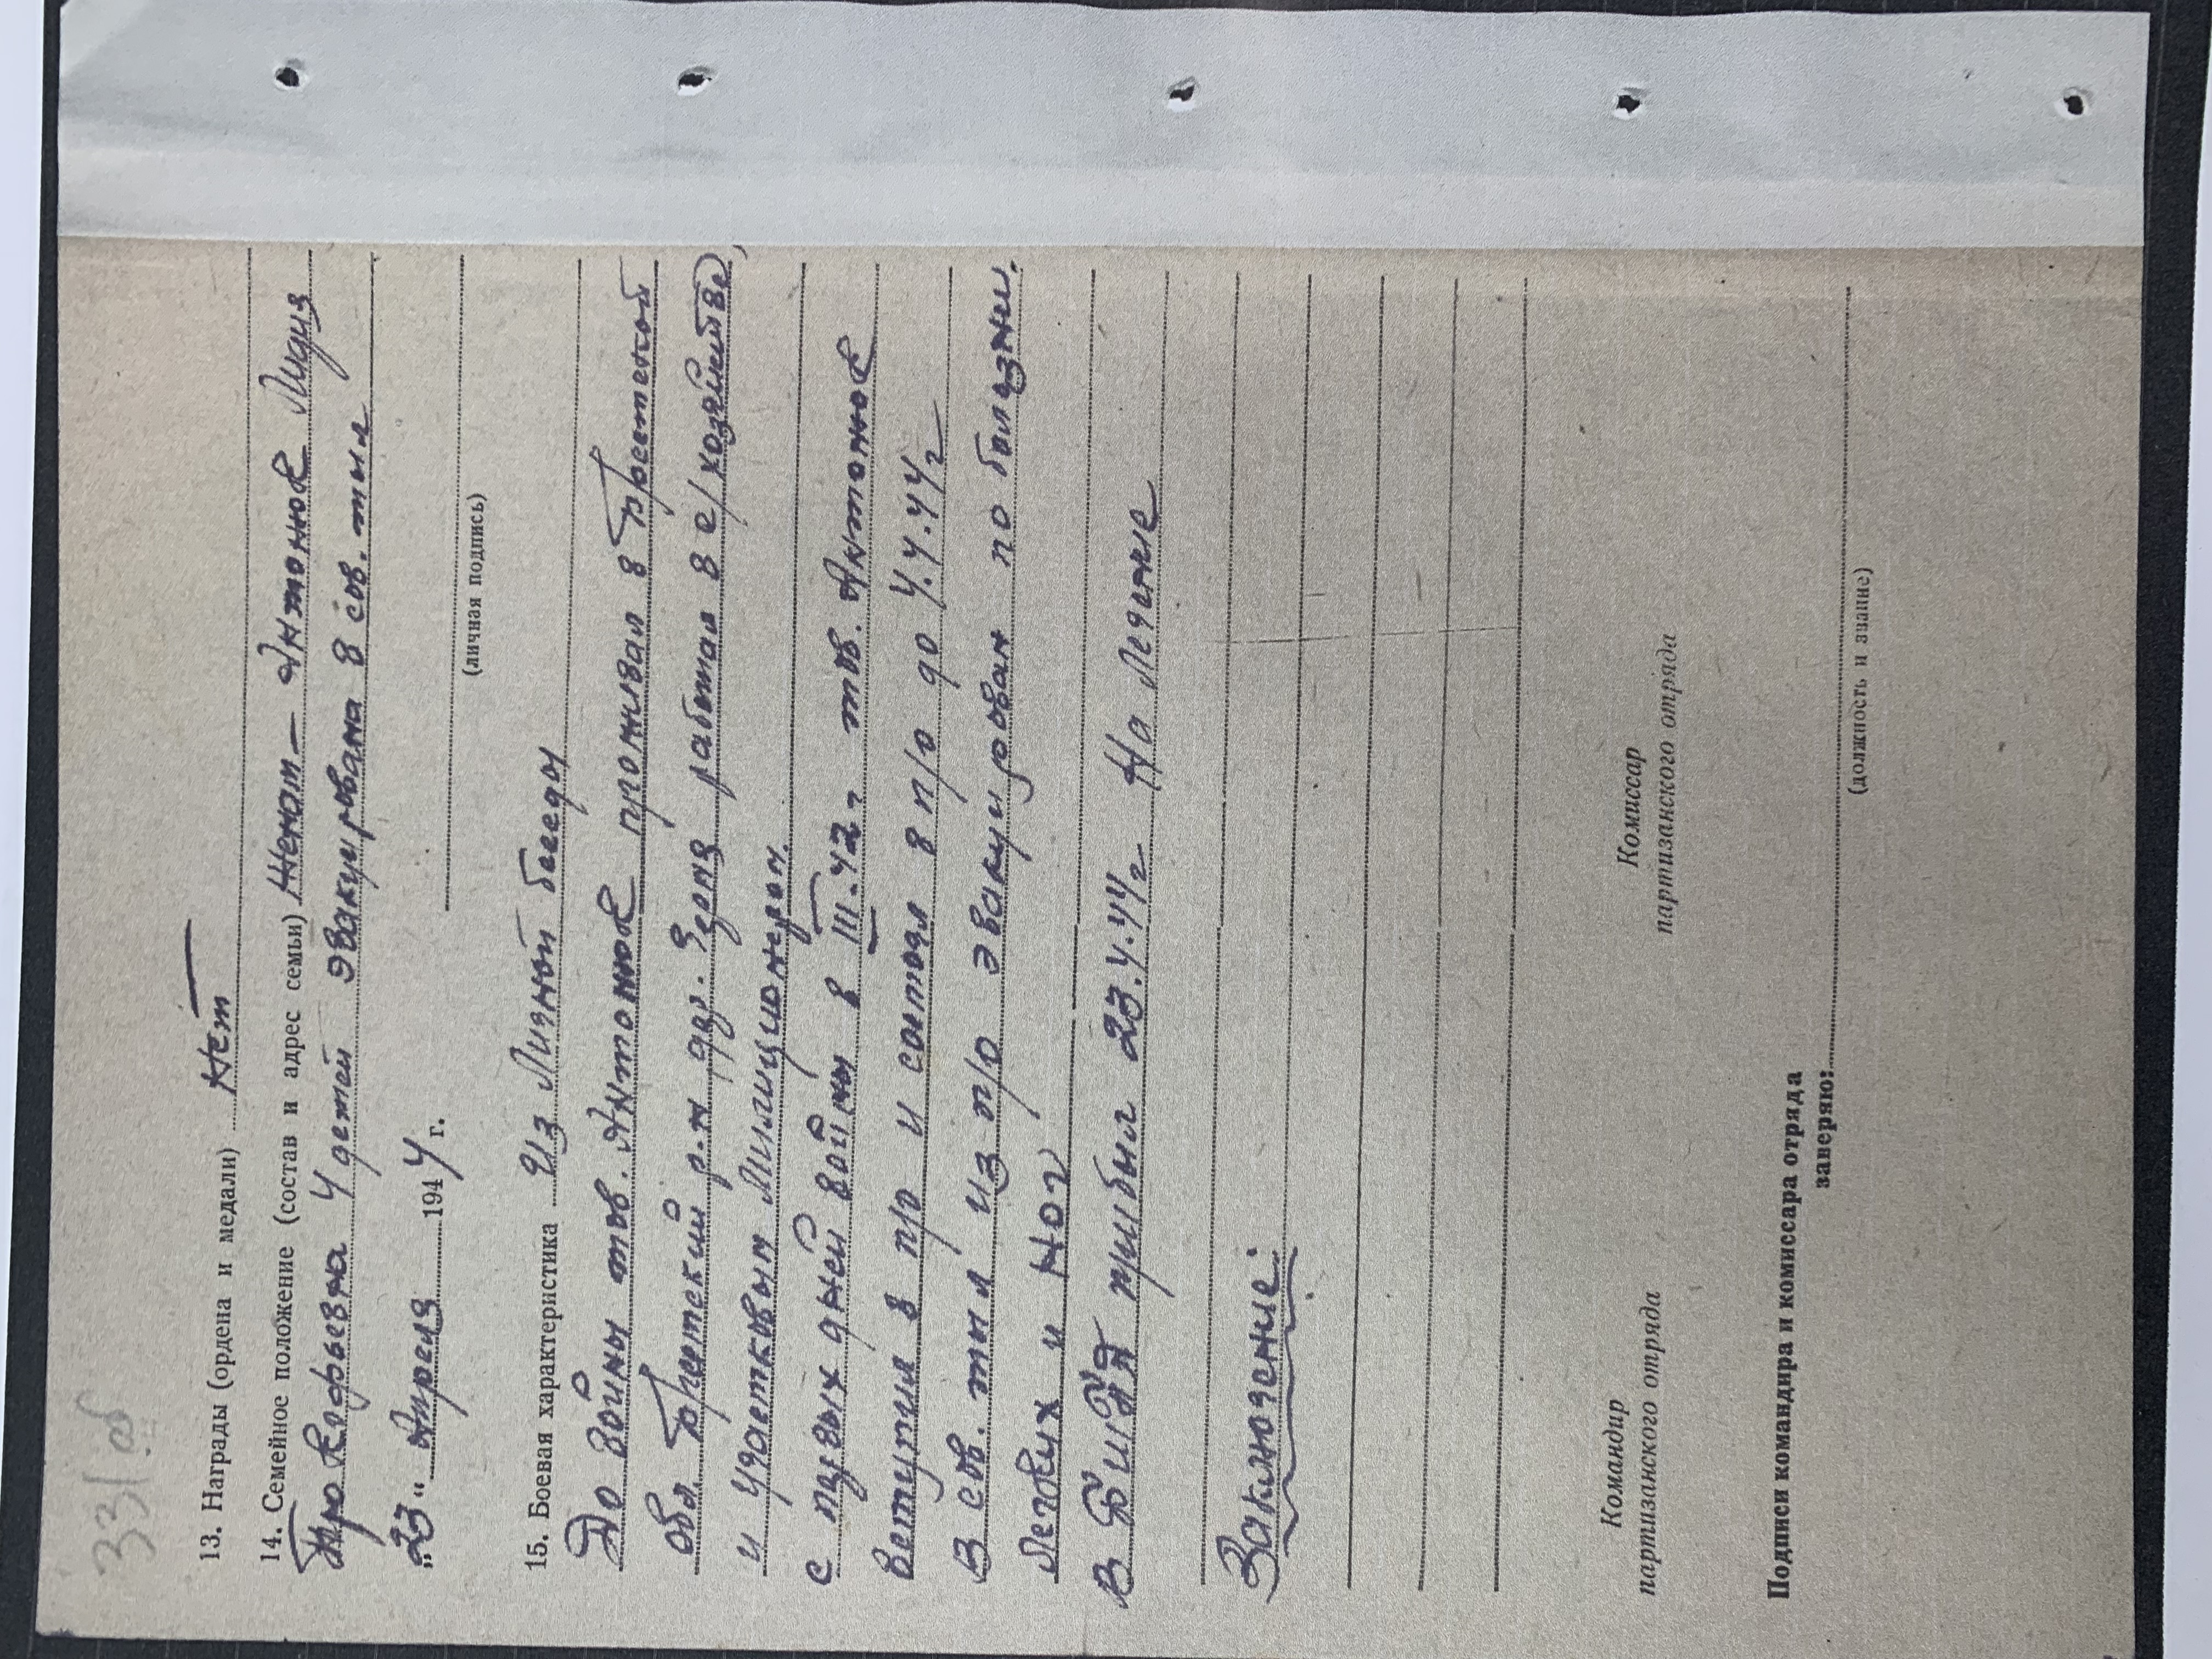 331 об
13. Награды (ордена и медали) Нет
14. Семейное положение (состав и адрес семьи) Женат – Антонюк Лидия
Прокофьевна 4 детей эвакуирована в сов. тыл
„23“ Апреля 1944 г.
(личная подпись)
15. Боевая характеристика Из Личной беседы
До войны тов. Антонюк проживал в Брестской
обл. Брестский р-н дер. работал в с/хозяйстве,
и участковым Милиционером.
с первых дней войны в III.42 г тов. Антонюк
вступил в п/о и состоял в п/о до 4.4.44г
В сов. тыл из п/о эвакуирован по болезни.
легких и ног
В прибыл 23.4.44г На Лечение
Заключение:
Командир
партизанского отряда
Комиссар
партизанского отряда
Подписи командира и комиссара отряда
заверяю:
(должность и звание)